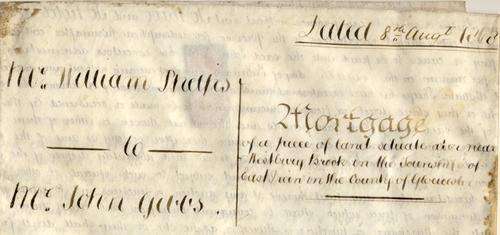 Dated 8th Augt 1868
Mr. William Phelps
to
Mr. John Gibbs.
Mortgage
of a piece of land situate at or near
Westbury Brook in the Township of
East Dean in the County of Gloucester